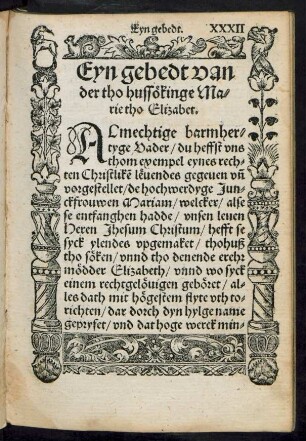 Eyn gebedt. XXXII
Eyn gebedt van
der tho hussökinge Ma-
rie tho Elizabet.
ALmechtige barmher-
tyge Vader / du heffst vns
thom exempel eynes rech-
ten Christlikē leuendes gegeuen vñ
vorgestellet / de hochwerdyge Junck-
frouwen Mariam / welcker / alse
se entfanghen hadde / vnsen leuen
Heren Jhesum Christum / hefft se
syck ylendes vpgemaket / thohuß
tho söken / vnnd tho denende erehr
mödder Elizabeth / vnnd wo syck
einem rechtgelöuigen gehöret / al-
les dath mit högestem flyte vth to-
richten / dar dorch dyn hylge name
gepryset / vnd dat hoge werck min-